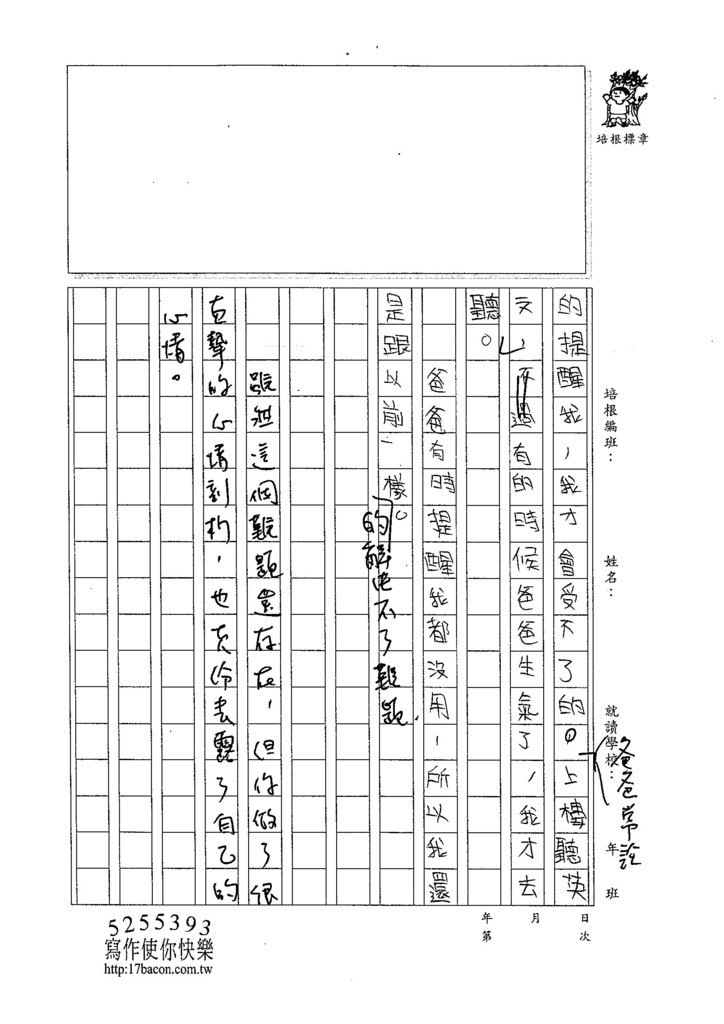 培根標章
培根編班：
姓名：
就讀學校：
年 班
爸爸常說
的提醒我，我才會受不了的。上樓聽英
文，不過有的時候爸爸生氣了，我才去
聽。
爸爸有時提醒我都沒用，所以我還
是跟以前一樣。
的解決不了難題，
雖然這個難題還存在，但你做了很
真摯的心情剖析，也
去露了自己的
心情。
年 月 日
第 次
5255393
寫作使你快樂
http:17bacon.com.tw